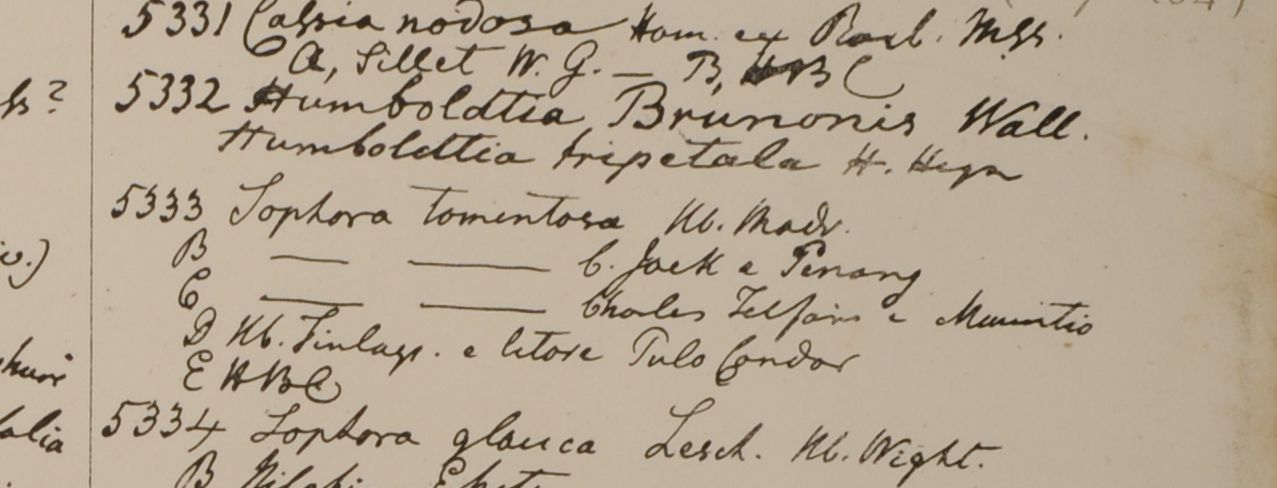 5331 Cassia nodosa Ham. ex Roxb. Mss.
A, Sillet W. G. — B, HBC
5332 Humboldtia Brunonis Wall.
Humboldtia tripetala H. Heyn
5333 Sophora tomentosa Hb. Madr.
B — — C. Jack e Penang
C — — Charles Telfair e Mauritio
D Hb. Finlays. e litore Pulo Condor
E HBC
5334 Sophora glauca Lesch. Hb. Wight.
B